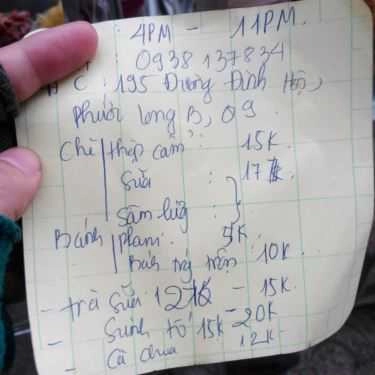 4PM - 11PM.
0938 137834
Đ C : 195 Dương Đình Hội,
Phước Long B, Q9.
Chè thập cẩm : 15K
Sữa : 17K
Sâm lũy :
Bánh phlan : 5K
Bánh tráng trộn 10K
- Trà Sữa : 12K - 15K
- Sinh tố 15K - 20K
- Cà chua 12K